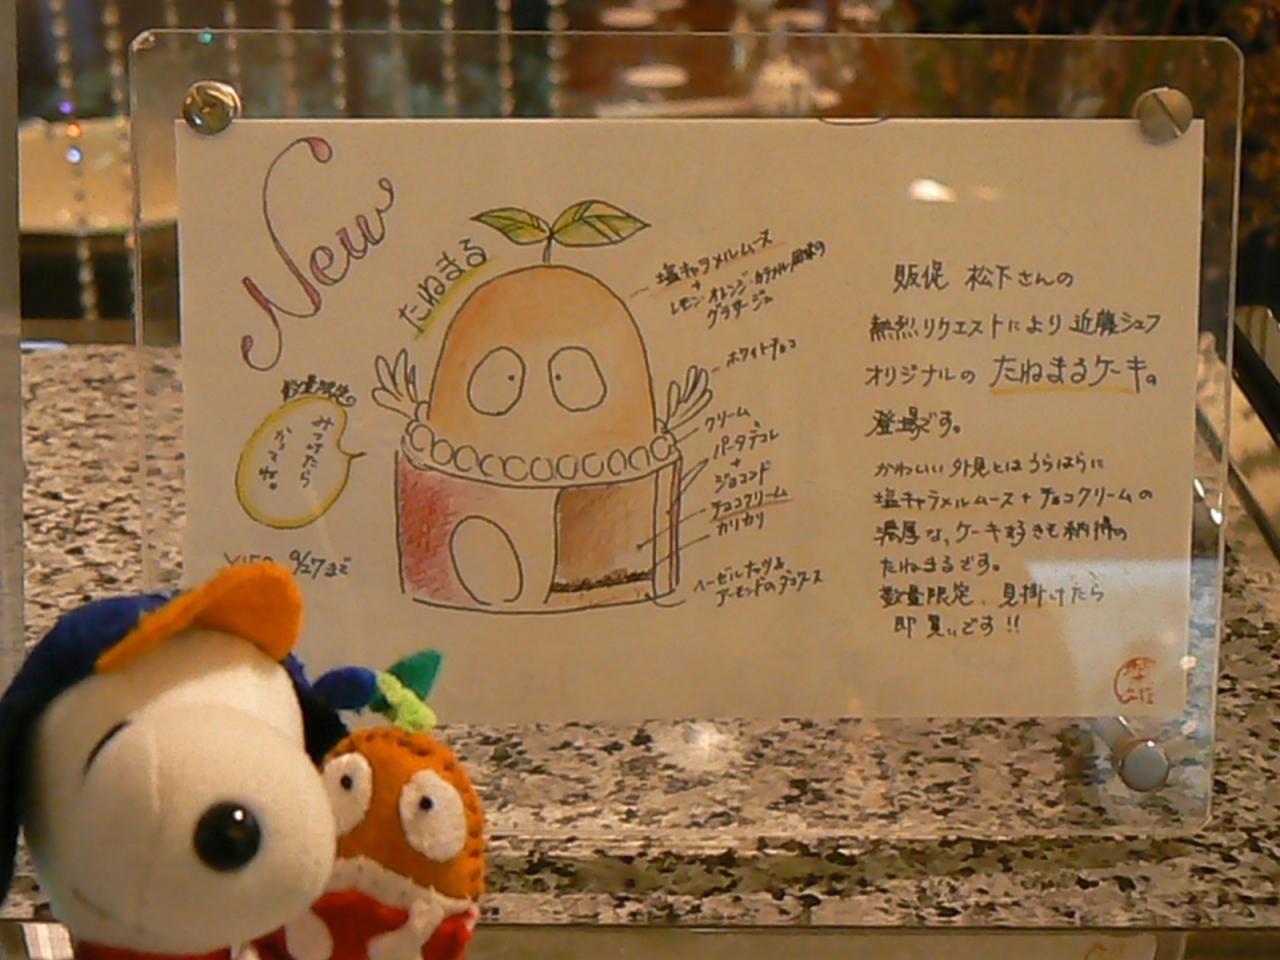 New
たねまる
塩キャラメルムース
+
レモン・オレンジ・カラメル風味の
グラサージュ
ホワイトチョコ
クリーム
パータデコレ
+
ジョコンド
チョコクリーム
カリカリ
ヘーゼルナッツ&
アーモンドのダコワーズ
数量限定
みつけたら
かってね。
9/27まで
販促 松下さんの
熱烈リクエストにより 近藤シェフ
オリジナルの たねまるケーキ。
登場です。
かわいい外見とはうらはらに
塩キャラメルムース+チョコクリームの
濃厚な、ケーキ好きも納得の
たねまるです。
数量限定、見掛けたら
即買いです!!